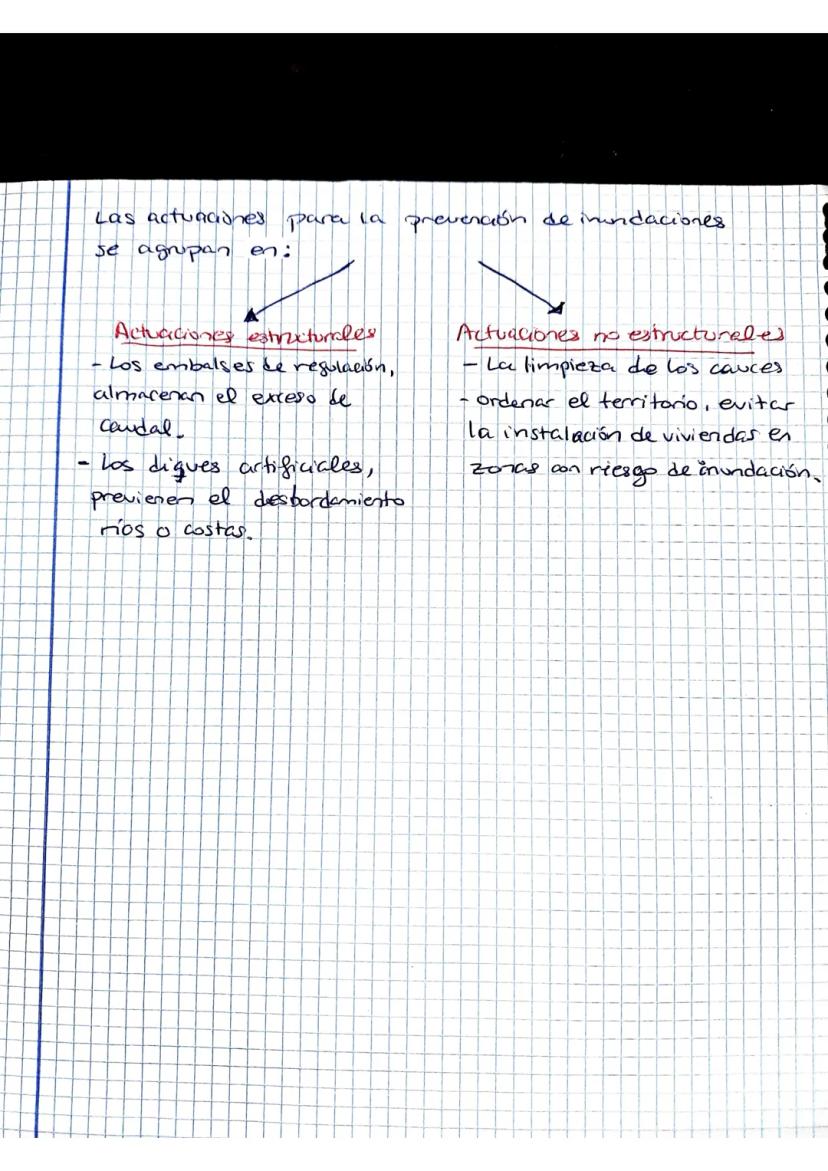 Las actuaciones para la prevención de inundaciones
se agrupan en:
Actuaciones estructurales
- Los embalses de regulación,
almacenan el exceso de
caudal.
- Los diques artificiales,
previenen el desbordamiento
ríos o costas.
Actuaciones no estructurales
- La limpieza de los cauces
- ordenar el territorio, evitar
la instalación de viviendas en
zonas con riesgo de inundación.